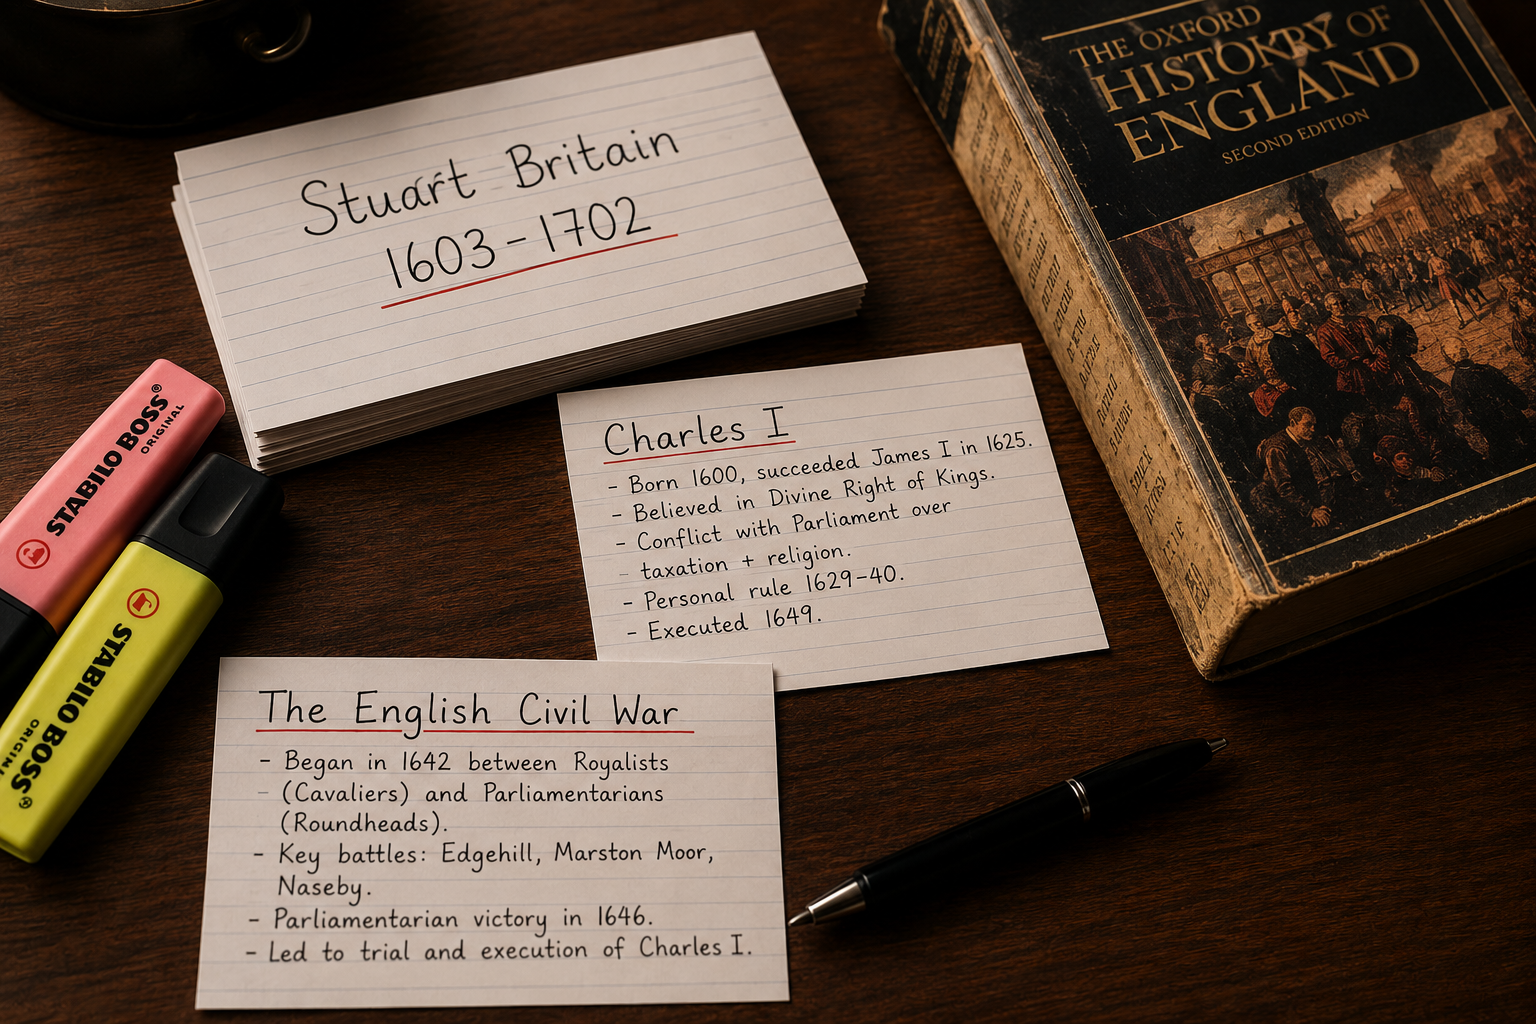 Stuart Britain
1603-1702
THE OXFORD
HISTOKRY OF
ENGLAND
SECOND EDITION
STABILO BOSS®
ORIGINAL
STABILO BOSS®
Charles I
- Born 1600, succeeded James I in 1625.
- Believed in Divine Right of Kings.
- Conflict with Parliament over
- taxation + religion.
- Personal rule 1629-40.
- Executed 1649.
The English Civil War
- Began in 1642 between Royalists
- (Cavaliers) and Parliamentarians
(Roundheads).
- Key battles: Edgehill, Marston Moor,
Naseby.
- Parliamentarian victory in 1646.
- Led to trial and execution of Charles I.